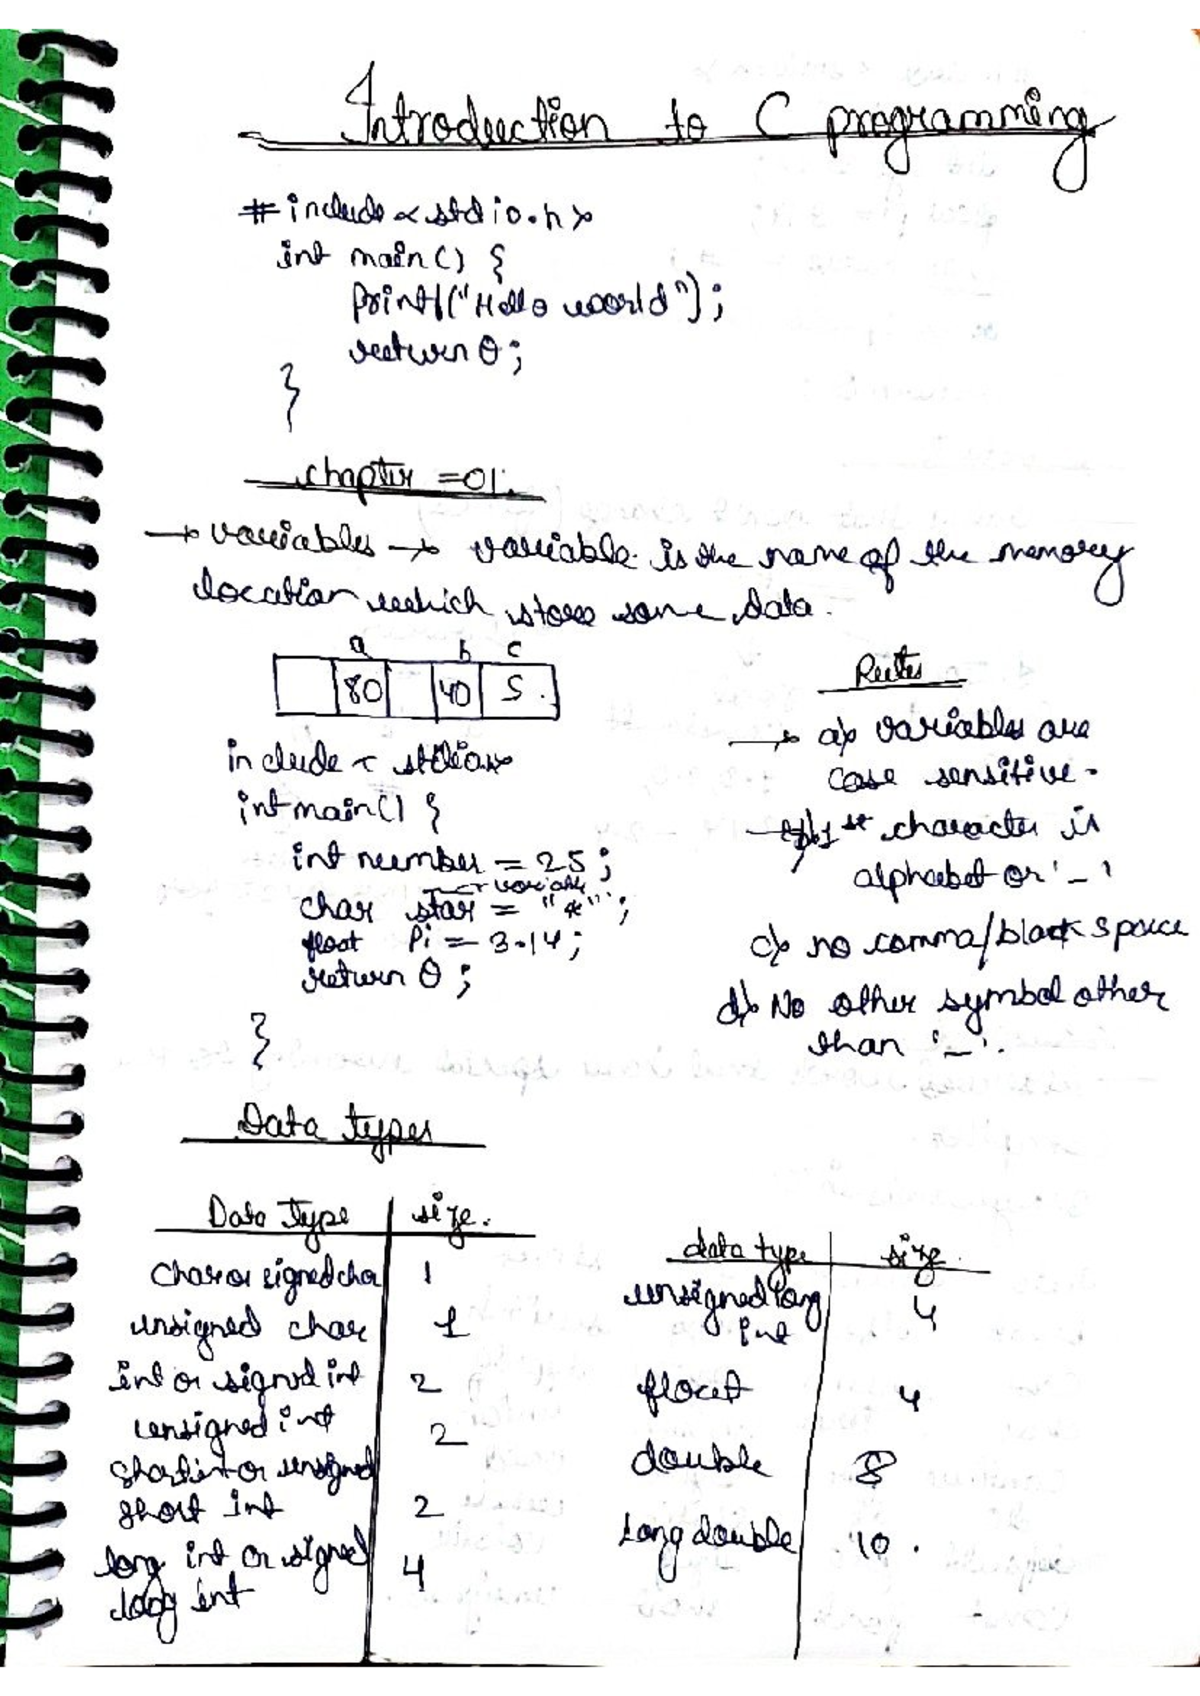 Introduction to C programming
#include <stdio.h>
int main() {
printf("Hello world");
return 0;
}
chapter = 01.
→ variables → variable is the name of the memory
location which store some data.
a b c
80 40 5.
Rules
→ a) variables are
case sensitive.
→ b) 1st character is
alphabet or '_'
c) no comma/blank space
d) No other symbol other
than '_'.
include <
int main() {
int number = 25;
→ variable
char star = "*";
float Pi = 3.14;
return 0;
}
Data types
Data Type size.
char or signed char 1
unsigned char 1
int or signed int 2
unsigned int 2
short int or unsigned
short int 2
long int or signed
long int 4
data type size.
unsigned long
int 4
float 4
double 8
Long double 10.